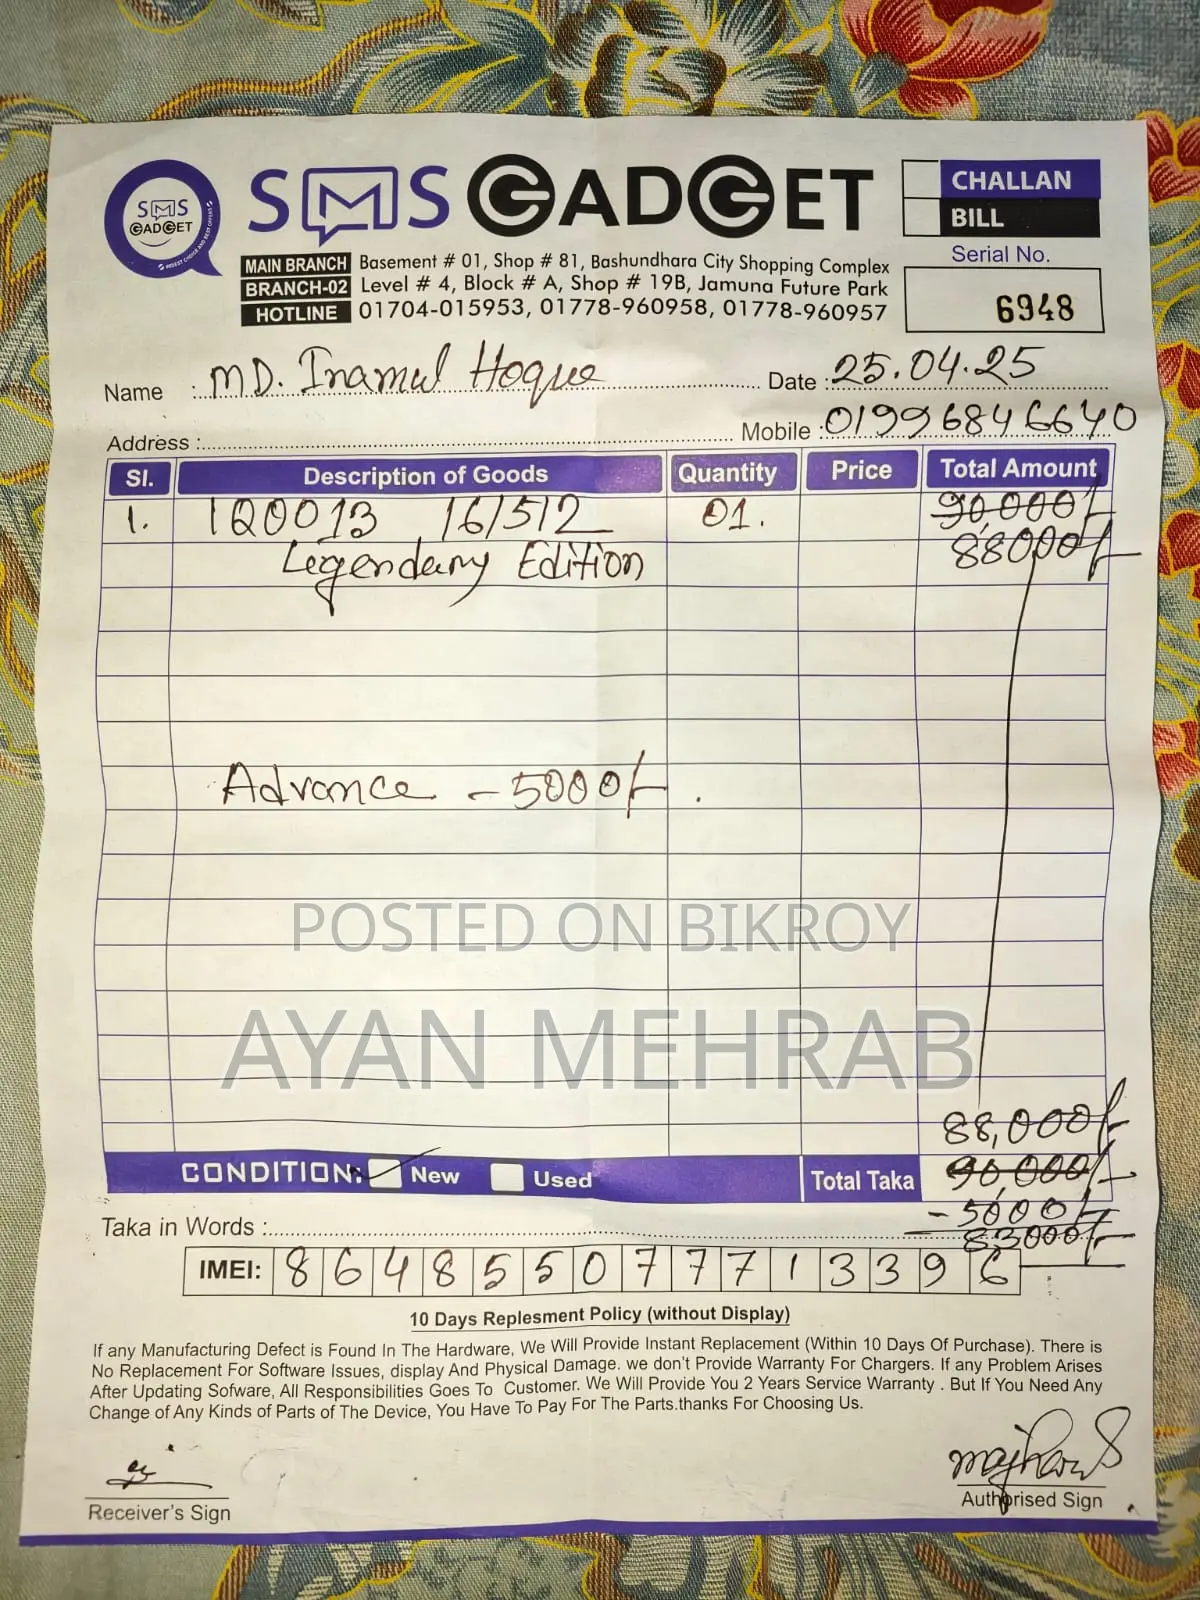 SMS GADGET
SMS GADGET
CHALLAN
BILL
MAIN BRANCH Basement # 01, Shop # 81, Bashundhara City Shopping Complex
BRANCH-02 Level # 4, Block # A, Shop # 19B, Jamuna Future Park
HOTLINE 01704-015953, 01778-960958, 01778-960957
Serial No.
6948
Name : MD. Inamul Hoque Date : 25.04.25
Address : Mobile : 01996846640
Sl. Description of Goods Quantity Price Total Amount
1. IQOO 13 16/512 01. 90,000/-
Legendary Edition 88000/-
Advance - 5000/-
POSTED ON BIKROY
AYAN MEHRAB
88,000/-
CONDITION: New Used Total Taka 90,000/-
- 5000/-
Taka in Words : 83000/-
IMEI: 864855077713396
10 Days Replesment Policy (without Display)
If any Manufacturing Defect is Found In The Hardware, We Will Provide Instant Replacement (Within 10 Days Of Purchase). There is
No Replacement For Software Issues, display And Physical Damage. we don't Provide Warranty For Chargers. If any Problem Arises
After Updating Sofware, All Responsibilities Goes To Customer. We Will Provide You 2 Years Service Warranty . But If You Need Any
Change of Any Kinds of Parts of The Device, You Have To Pay For The Parts.thanks For Choosing Us.
Receiver's Sign Authorised Sign